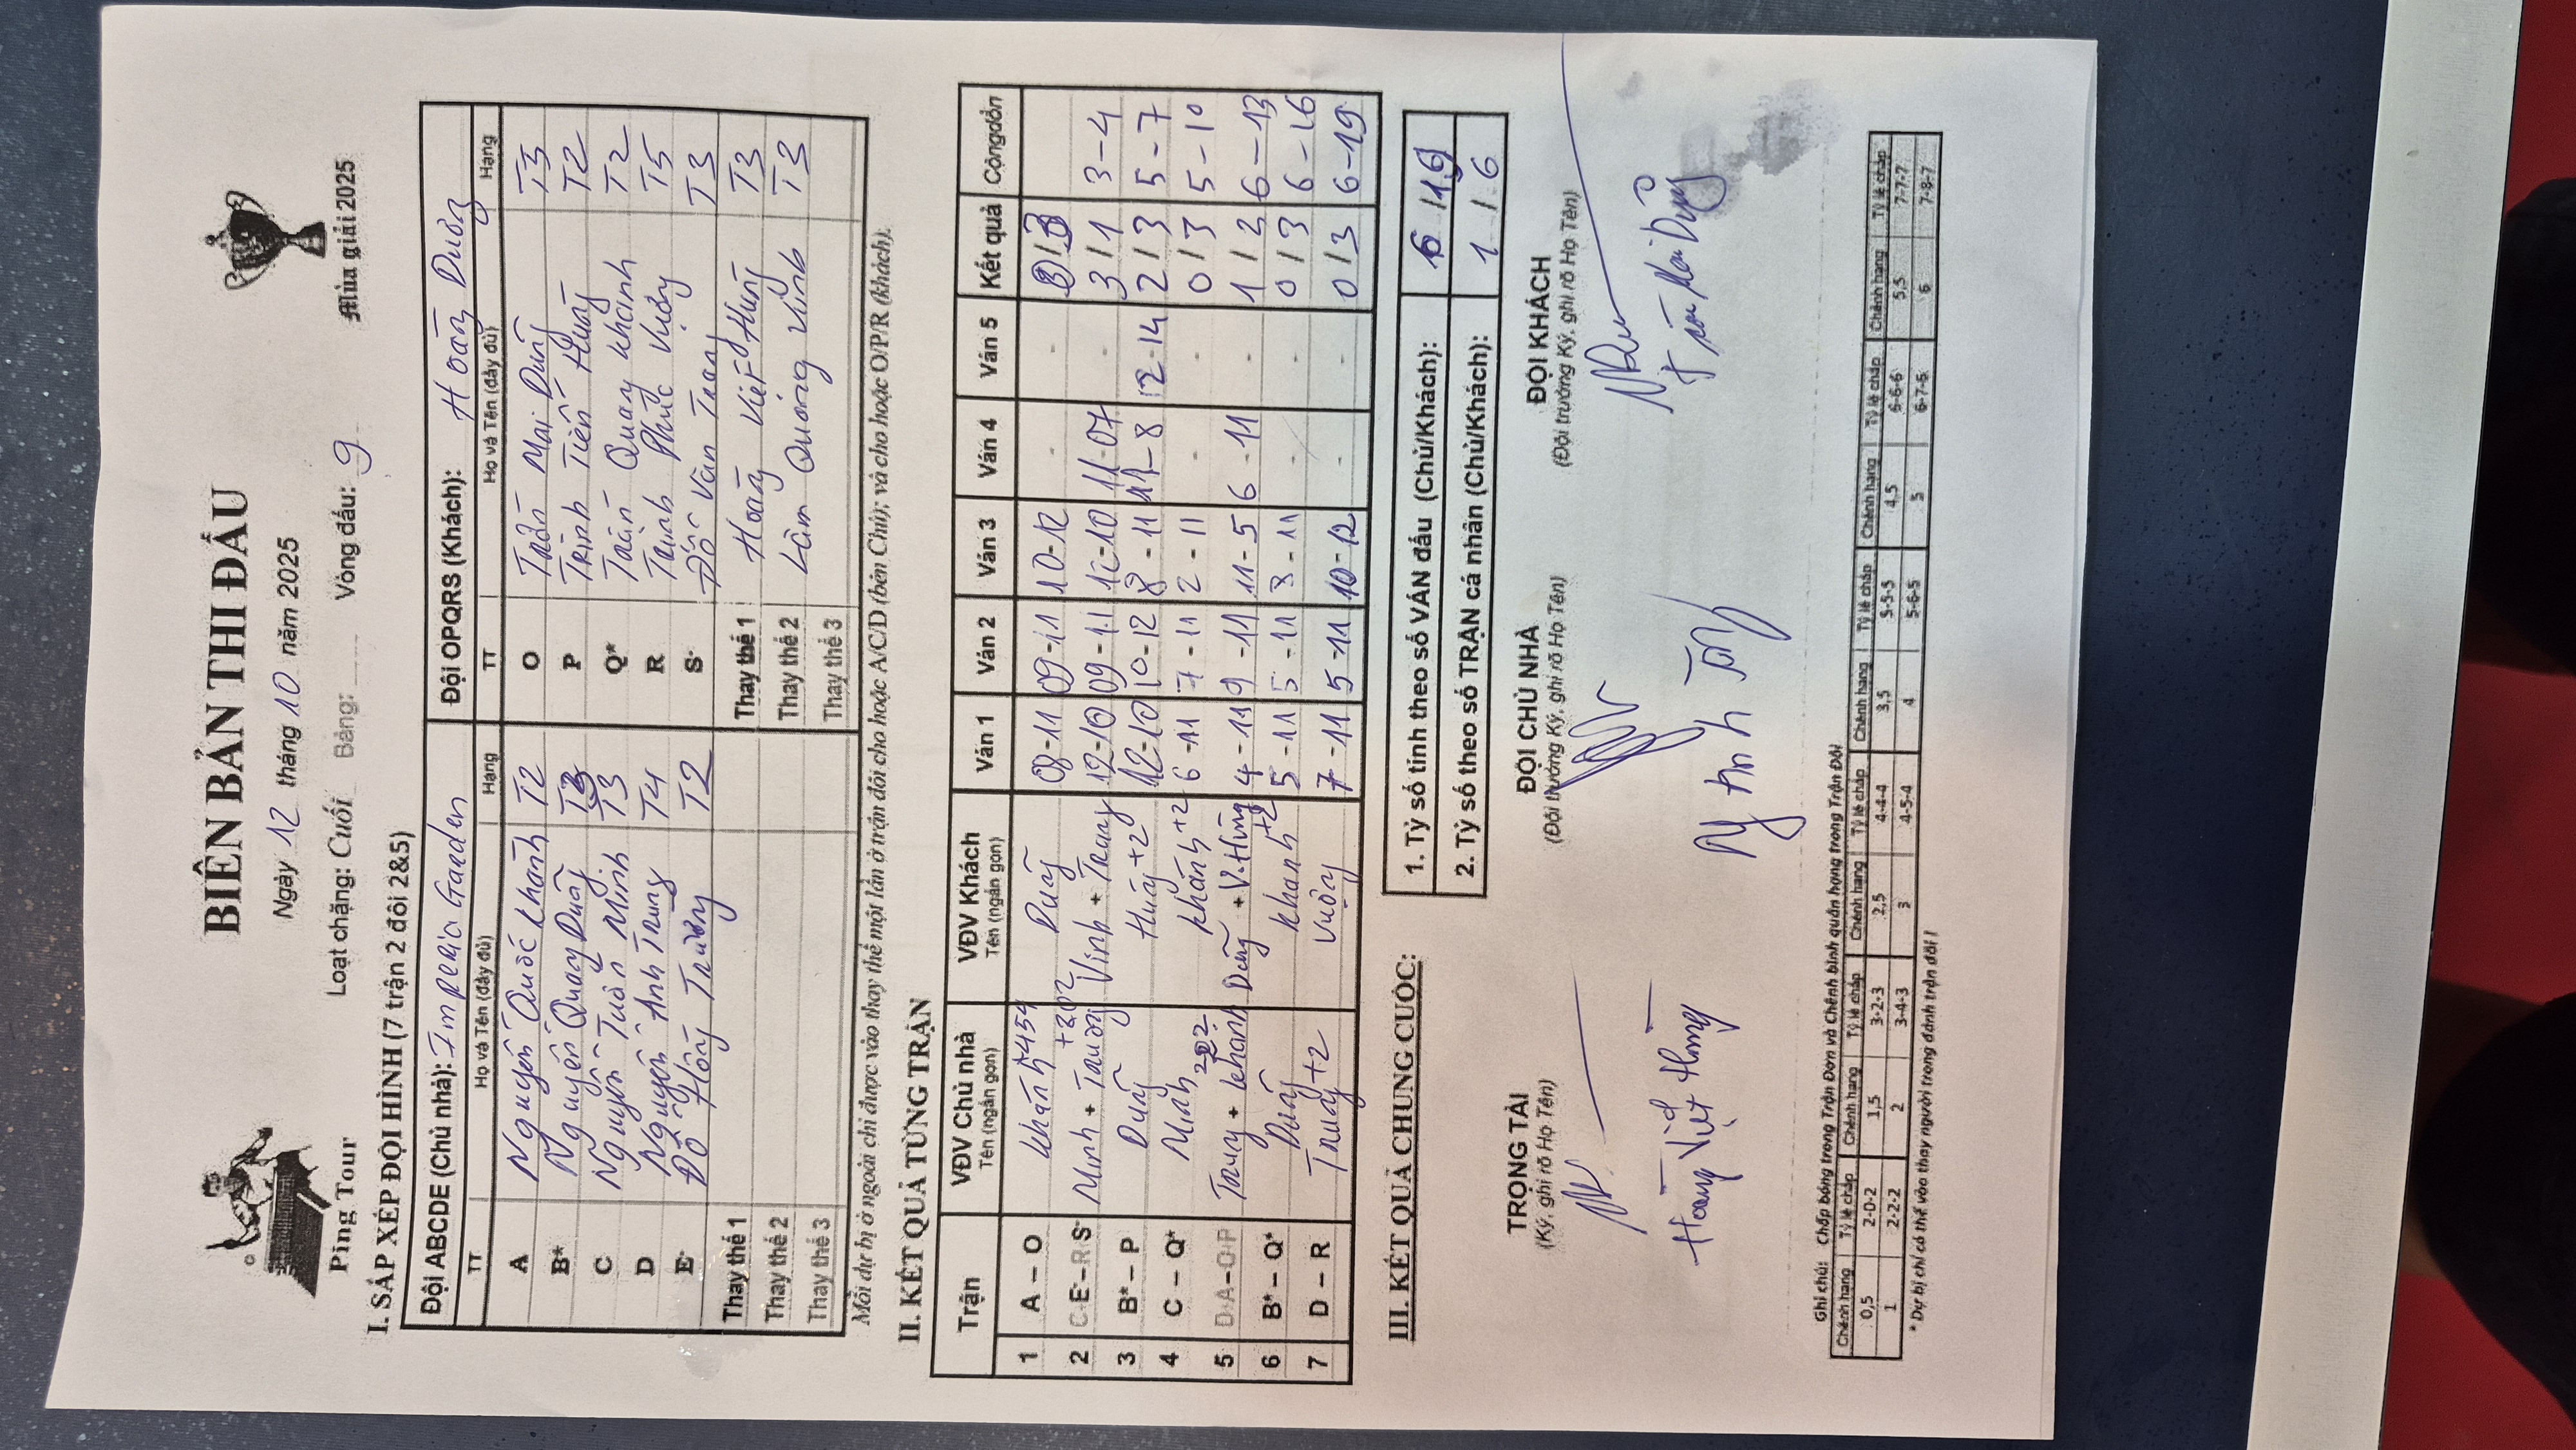 BIÊN BẢN THI ĐẤU
Ngày 12 tháng 10 năm 2025
Ping Tour
Loạt chặng: Cuối Bảng: Vòng đấu: 9
Mùa giải 2025
I. SẮP XẾP ĐỘI HÌNH (7 trận 2 đôi 2&5)
Đội ABCDE (Chủ nhà): Imperia Garden Đội OPQRS (Khách): Hoàng Dương
TT Họ và Tên (đầy đủ) Hạng TT Họ và Tên (đầy đủ) Hạng
A Nguyễn Quốc Khánh T2 O Trần Mai Dũng T3
B* Nguyễn Quang Dũng T3 P Trịnh Tiến Hùng T2
C Nguyễn Tuấn Minh T3 Q* Trần Quang Khánh T2
D Nguyễn Anh Trung T4 R Trịnh Phúc Vượng T5
E* Đỗ Hồng Trường T2 S* Đỗ Văn Trang T3
Thay thế 1 Thay thế 1 Hoàng Việt Hùng T3
Thay thế 2 Thay thế 2 Lâm Quảng Vinh T3
Thay thế 3 Thay thế 3
Mỗi dự bị ở ngoài chỉ được vào thay thế một lần ở trận đôi cho hoặc A/C/D (bên Chủ); và cho hoặc O/P/R (khách).
II. KẾT QUẢ TỪNG TRẬN
Trận VĐV Chủ nhà Tên (ngắn gọn) VĐV Khách Tên (ngắn gọn) Ván 1 Ván 2 Ván 3 Ván 4 Ván 5 Kết quả Cộngdồn
1 A – O Khánh+454 Dũng 08-11 09-11 10-12 - - 0/3
2 C E – R S* Minh + Trường +202 Vinh + Trang 12-10 09-11 12-10 11-07 - 3/1 3-4
3 B* – P Dũng Hùng+2 12-10 10-12 8-11 11-8 12-14 2/3 5-7
4 C – Q* Minh Khánh+2 6-11 7-11 2-11 - - 0/3 5-10
5 D A – O P Trung + Khánh 202 Dũng + V.Hùng 4-11 9-11 11-5 6-11 - 1/3 6-13
6 B* – Q* Dũng Khanh+2 5-11 5-11 3-11 - - 0/3 6-16
7 D – R Trung+2 Vượng 7-11 5-11 10-12 - - 0/3 6-19
III. KẾT QUẢ CHUNG CUỘC:
1. Tỷ số tính theo số VÁN đấu (Chủ/Khách): 6 / 19
2. Tỷ số theo số TRẬN cá nhân (Chủ/Khách): 1 / 6
TRỌNG TÀI ĐỘI CHỦ NHÀ ĐỘI KHÁCH
(Ký, ghi rõ Họ Tên) (Đội trưởng Ký, ghi rõ Họ Tên) (Đội trưởng Ký, ghi rõ Họ Tên)
Hoàng Việt Hùng Trần Mai Dũng
Ghi chú: Chấp bóng trong Trận Đơn và Chênh bình quân hạng trong Trận Đôi
Chênh hạng Tỷ lệ chấp Chênh hạng Tỷ lệ chấp Chênh hạng Tỷ lệ chấp Chênh hạng Tỷ lệ chấp Chênh hạng Tỷ lệ chấp Chênh hạng Tỷ lệ chấp
0,5 2-0-2 1,5 3-2-3 2,5 4-4-4 3,5 5-5-5 4,5 6-6-6 5,5 7-7-7
1 2-2-2 2 3-4-3 3 4-5-4 4 5-6-5 5 6-7-6 6 7-8-7
* Dự bị chỉ có thể vào thay người trong đánh trận đôi !